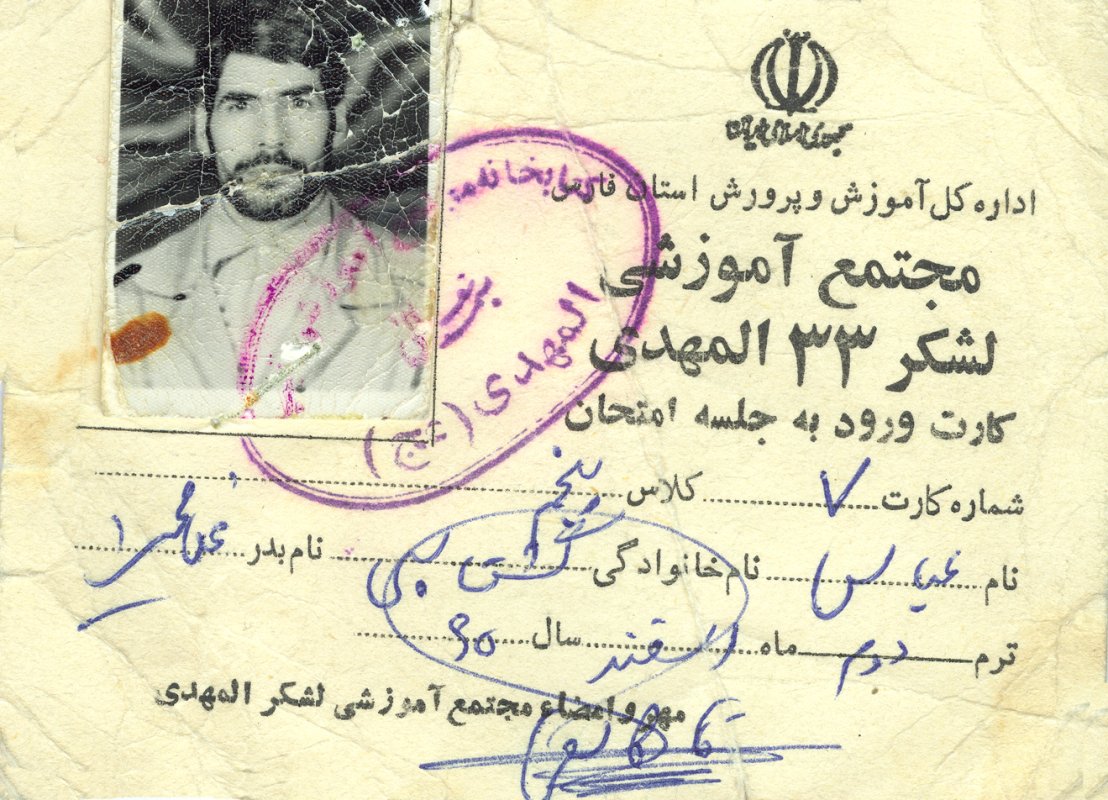 جمهوری اسلامی ایران
اداره کل آموزش و پرورش استان فارس
مجتمع آموزشی
لشکر ۳۳ المهدی
کارت ورود به جلسه امتحان
شماره کارت ۷ کلاس پنجم
نام عباس نام خانوادگی نام پدر
ترم دوم ماه اسفند سال ۶۵
مهر و امضاء مجتمع آموزشی لشکر المهدی
کتابخانه
المهدی (عج)